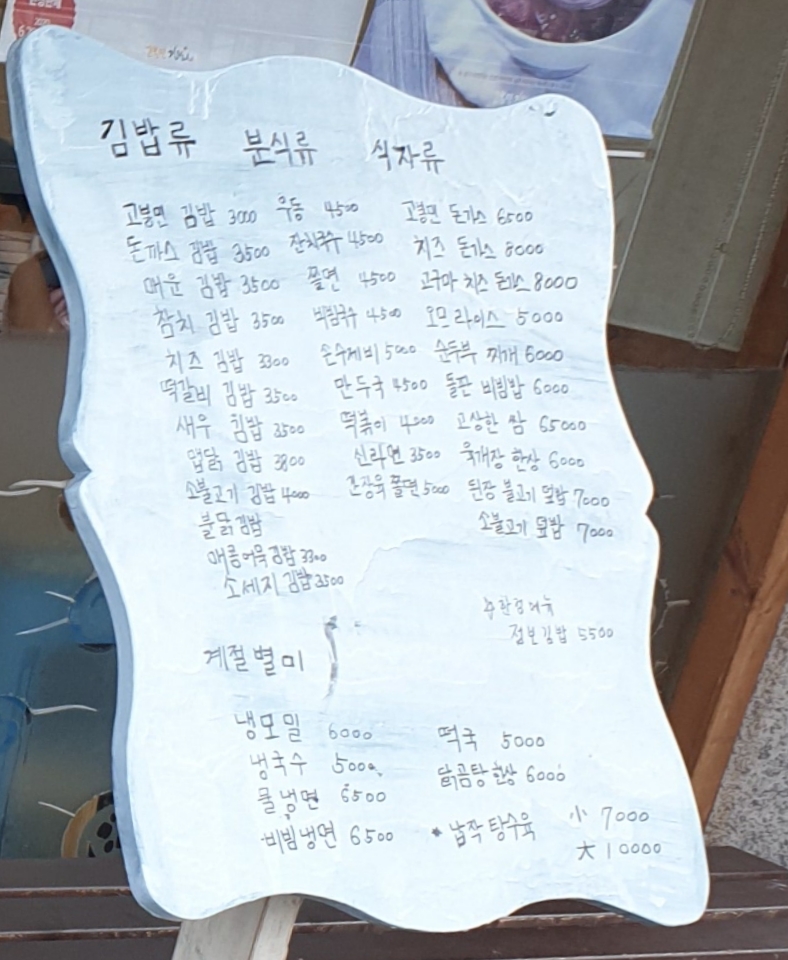 김밥류 분식류 식자류
고봉면 김밥 3000 우동 4500 고봉면 돈가스 6500
돈까스 김밥 3500 잔치국수 4500 치즈 돈가스 8000
매운 김밥 3500 쫄면 4500 고구마 치즈 돈가스 8000
참치 김밥 3500 비빔국수 4500 오므라이스 5000
치즈 김밥 3300 손수제비 5000 순두부 찌개 6000
떡갈비 김밥 3500 만두국 4500 돌판 비빔밥 6000
새우 김밥 3500 떡볶이 4000 고상한 쌈 65000
맵닭 김밥 3800 신라면 3500 육개장 한상 6000
소불고기 김밥 4000 간장육쫄면 5000 된장 불고기 덮밥 7000
불닭김밥 소불고기 덮밥 7000
매콤어묵김밥 3300
소세지 김밥 3500
점보김밥 5500
계절별미
냉모밀 6000 떡국 5000
냉국수 5000 닭곰탕한상 6000
물냉면 6500
비빔냉면 6500 * 납작탕수육 小 7000
大 10000